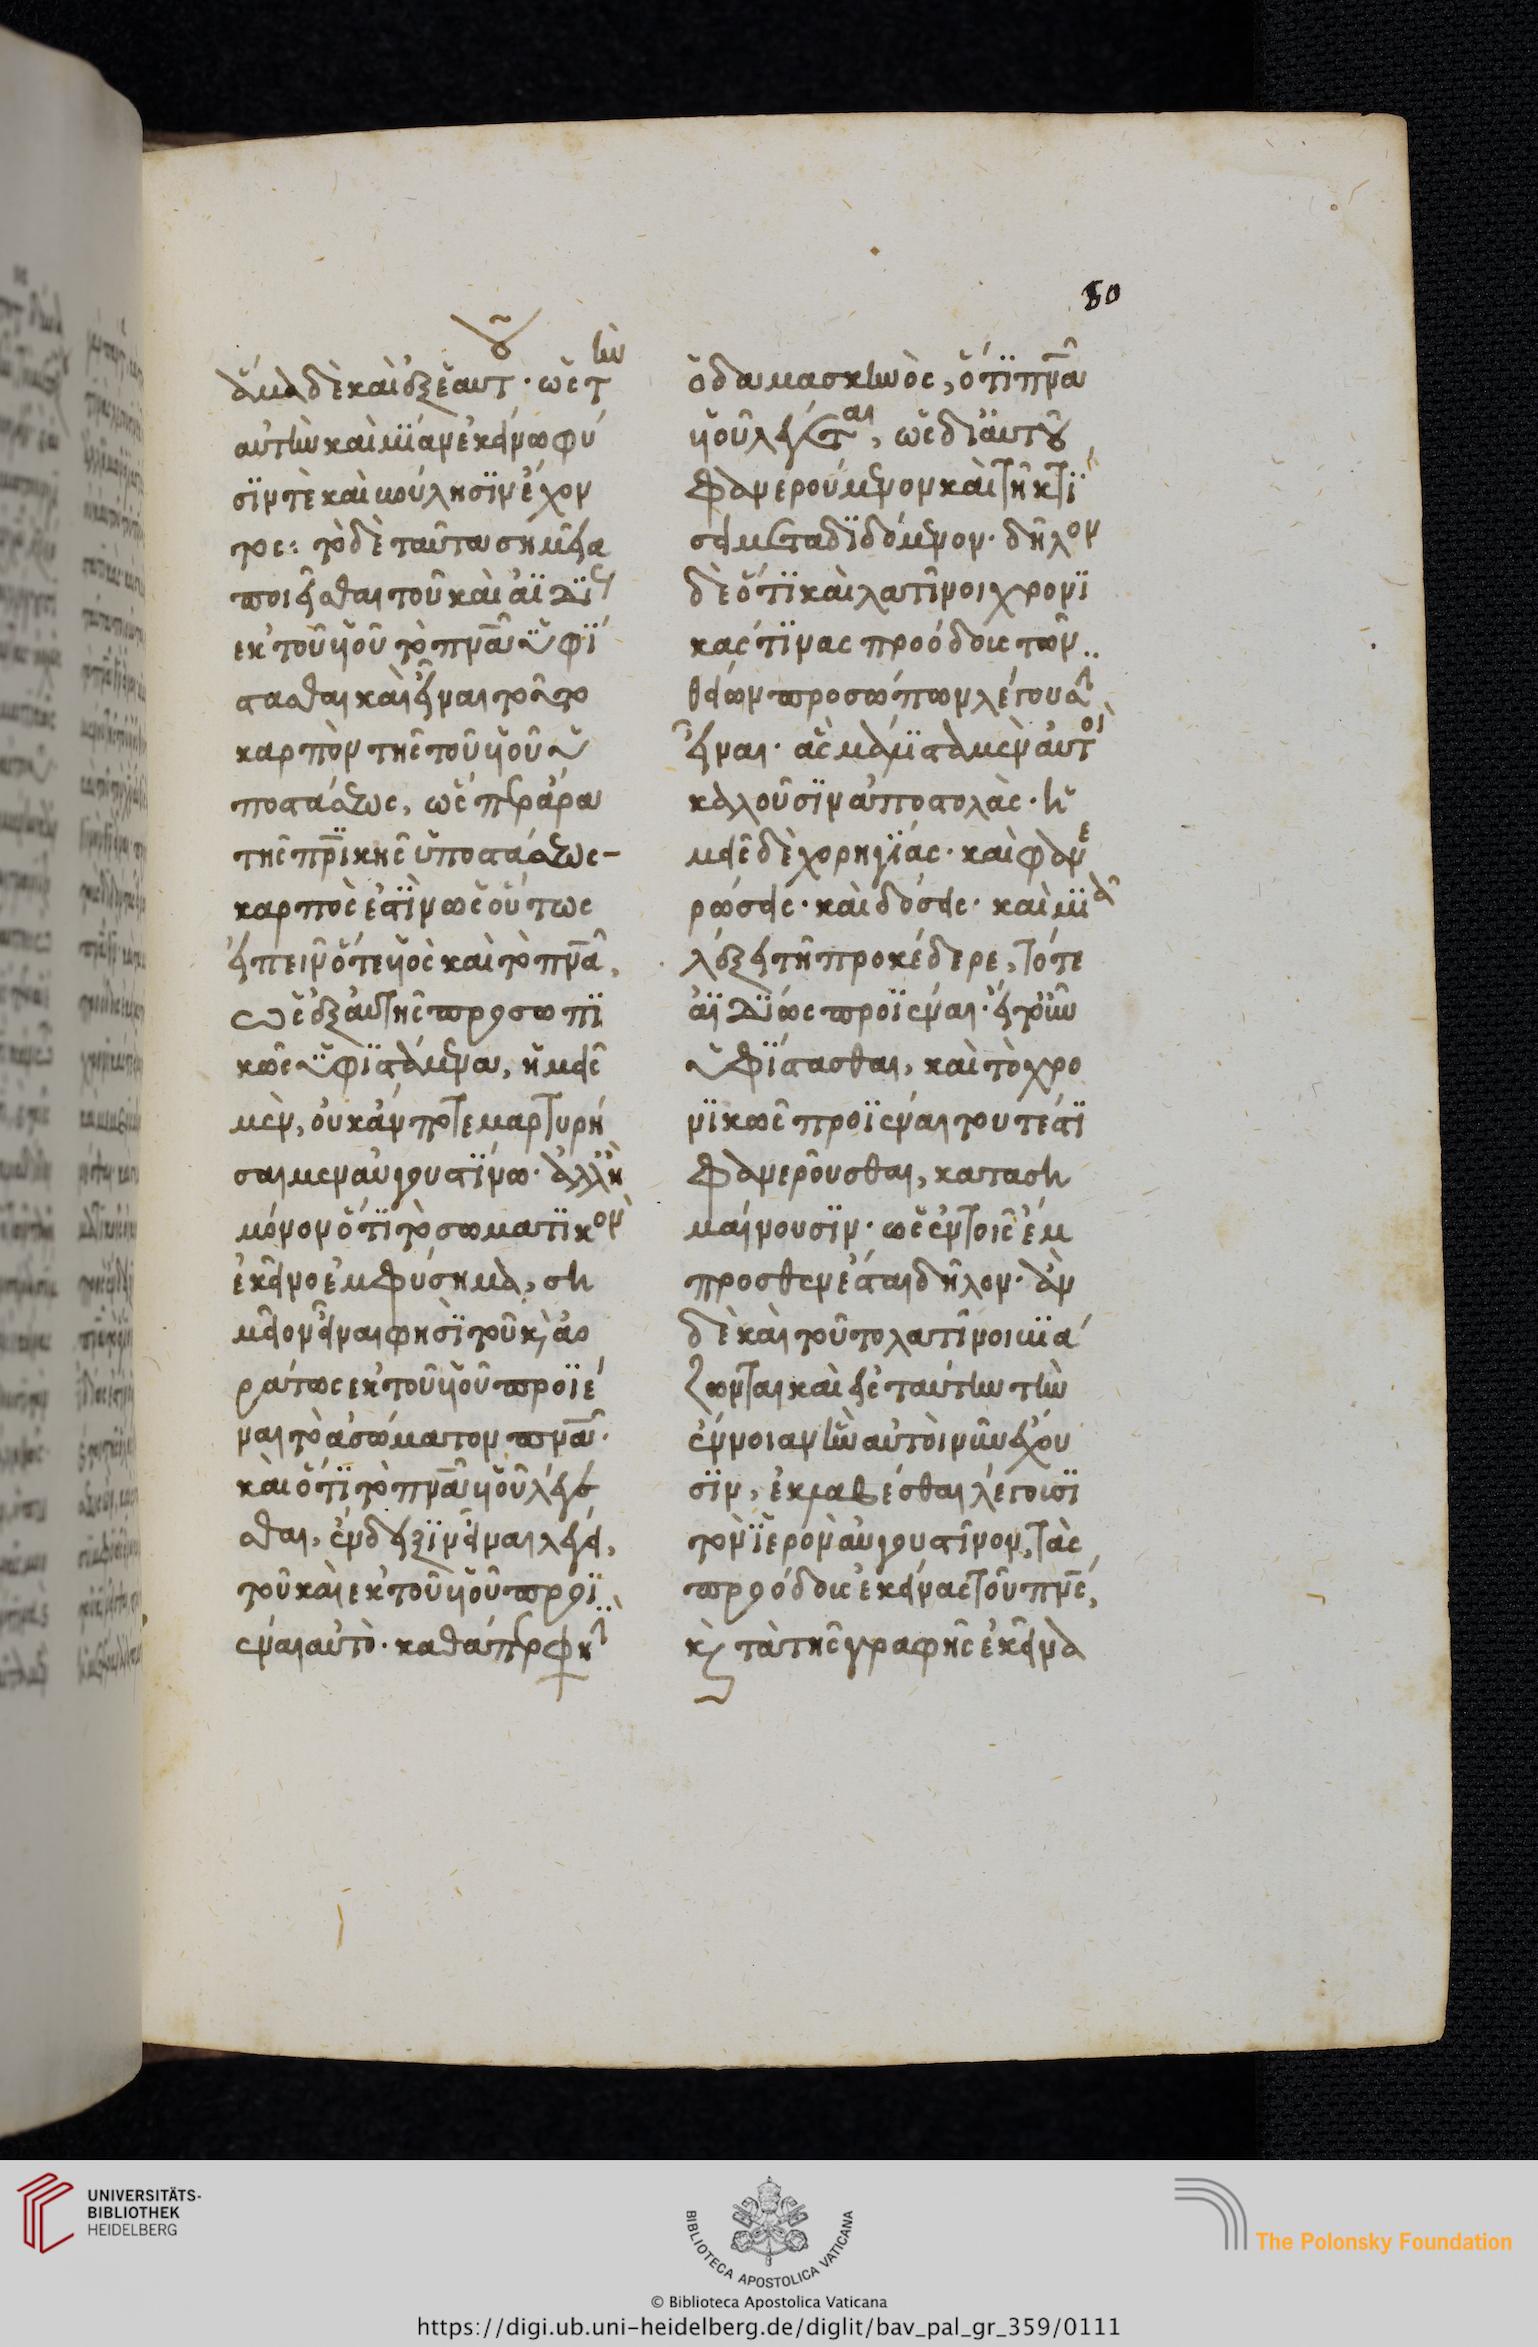 80
ἅμα δὲ καὶ ἐξ ἑαυτοῦ· ὡς τὴν
αὐτὴν καὶ μίαν ἐκείνω φύ
σιν τὲ καὶ βούλησιν ἔχον
τος: τὸ δὲ ταῦτα σημεῖα
ποιεῖσθαι τοῦ καὶ ἀϊδίως
εκ τοῦ υἱοῦ τὸ πνᾶ ὑφί
στασθαι καὶ εἶναι τοῦτο
καρπὸν τῆς τοῦ υἱοῦ ὑ
ποστάσεως, ὥσπερ ἄρα
τῆς πρικῆς ὑποστάσεως-
καρπὸς ἐστὶν ὡς οὕτως
εἰπεῖν ὅτε υἱὸς καὶ τὸ πνᾶ,
ὡς ἐξ αὐτῆς προσωπι
κῶς ὑφιστάμενα, ἡμεῖς
μὲν, οὐκ ἄν ποτε μαρτυρή
σαιμεν αὐγουστίνω· ἀλλ' ἢ
μόνον ὅτι τὸ σωματικὸν
ἐκεῖνο ἐμφύσημα, ση
μεῖον εἶναι φησὶ τοῦ κ ἀο
ράτως εκ τοῦ υἱοῦ προϊέ
ναι τὸ ἀσώματον πνᾶ·
καὶ ὅτι τὸ πνᾶ υἱοῦ λέγε
σθαι, ἔνδειξιν εἶναι λέγει,
τοῦ καὶ εκ τοῦ υἱοῦ προϊ
έναι αὐτὸ· καθάπερ φησὶ
ὁ δαμασκηνὸς, ὅτι πνᾶ
υἱοῦ λέγεται, ὡς δι' αὐτοῦ
φανερούμενον καὶ τῆ κτί
σει μεταδιδόμενον· δῆλον
δὲ ὅτι καὶ λατῖνοι χρονι
κάς τινας προόδους τῶν
θείων προσώπων λέγουσιν
εἶναι· ἃς μάλιστα μὲν αὐτοὶ
καλοῦσιν ἀποστολὰς· ἡ
μεῖς δὲ χορηγίας· καὶ φανε
ρώσεις· καὶ δόσεις· καὶ μιᾶ
λέξει τῆ προκέδερε, τό τε
ἀϊδίως προϊέναι· ἤτοι
ὑφίστασθαι, καὶ τὸ χρο
νικῶς προϊέναι τουτέστι
φανεροῦσθαι, καταση
μαίνουσιν· ὡς ἐν τοῖς ἔμ
προσθεν ἔσται δῆλον· ἂν
δὲ καὶ τοῦτο λατῖνοι βιά
ζωνται καὶ εἰς ταύτην τὴν
ἔννοιαν ἣν αὐτοὶ νῦν ἔχου
σιν, ἐκλαβέσθαι λέγωσι
τὸν ἱερὸν αὐγουστῖνον, τὰς
προόδους ἐκείνας τοῦ πνς,
κ τὰ τῆς γραφῆς ἐκεῖνα
UNIVERSITÄTS-
BIBLIOTHEK
HEIDELBERG
BIBLIOTECA APOSTOLICA VATICANA
© Biblioteca Apostolica Vaticana
The Polonsky Foundation
https://digi.ub.uni-heidelberg.de/diglit/bav_pal_gr_359/0111